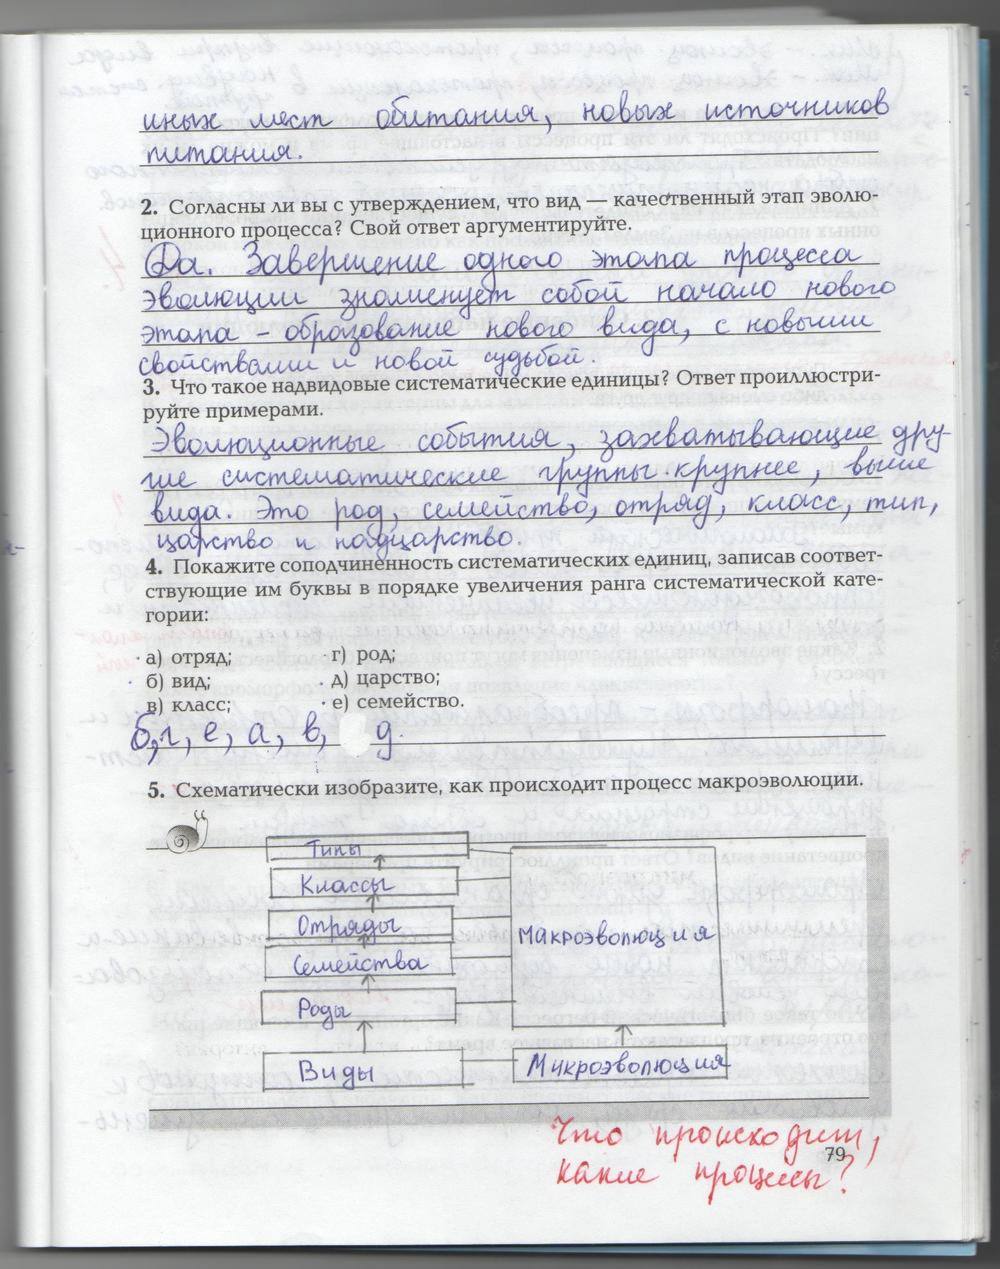 иных мест обитания, новых источников
питания.
2. Согласны ли вы с утверждением, что вид — качественный этап эволю-
ционного процесса? Свой ответ аргументируйте.
Да. Завершение одного этапа процесса
эволюции знаменует собой начало нового
этапа - образование нового вида, с новыми
свойствами и новой судьбой.
3. Что такое надвидовые систематические единицы? Ответ проиллюстри-
руйте примерами.
Эволюционные события, захватывающие дру-
гие систематические группы крупнее, выше
вида. Это род, семейство, отряд, класс, тип,
царство и надцарство.
4. Покажите соподчиненность систематических единиц, записав соответ-
ствующие им буквы в порядке увеличения ранга систематической кате-
гории:
а) отряд; г) род;
б) вид; д) царство;
в) класс; е) семейство.
б, г, е, а, в, д.
5. Схематически изобразите, как происходит процесс макроэволюции.
Типы
Классы
Отряды
Макроэволюция
Семейства
Роды
Виды Микроэволюция
Что происходит,
79
какие процессы?